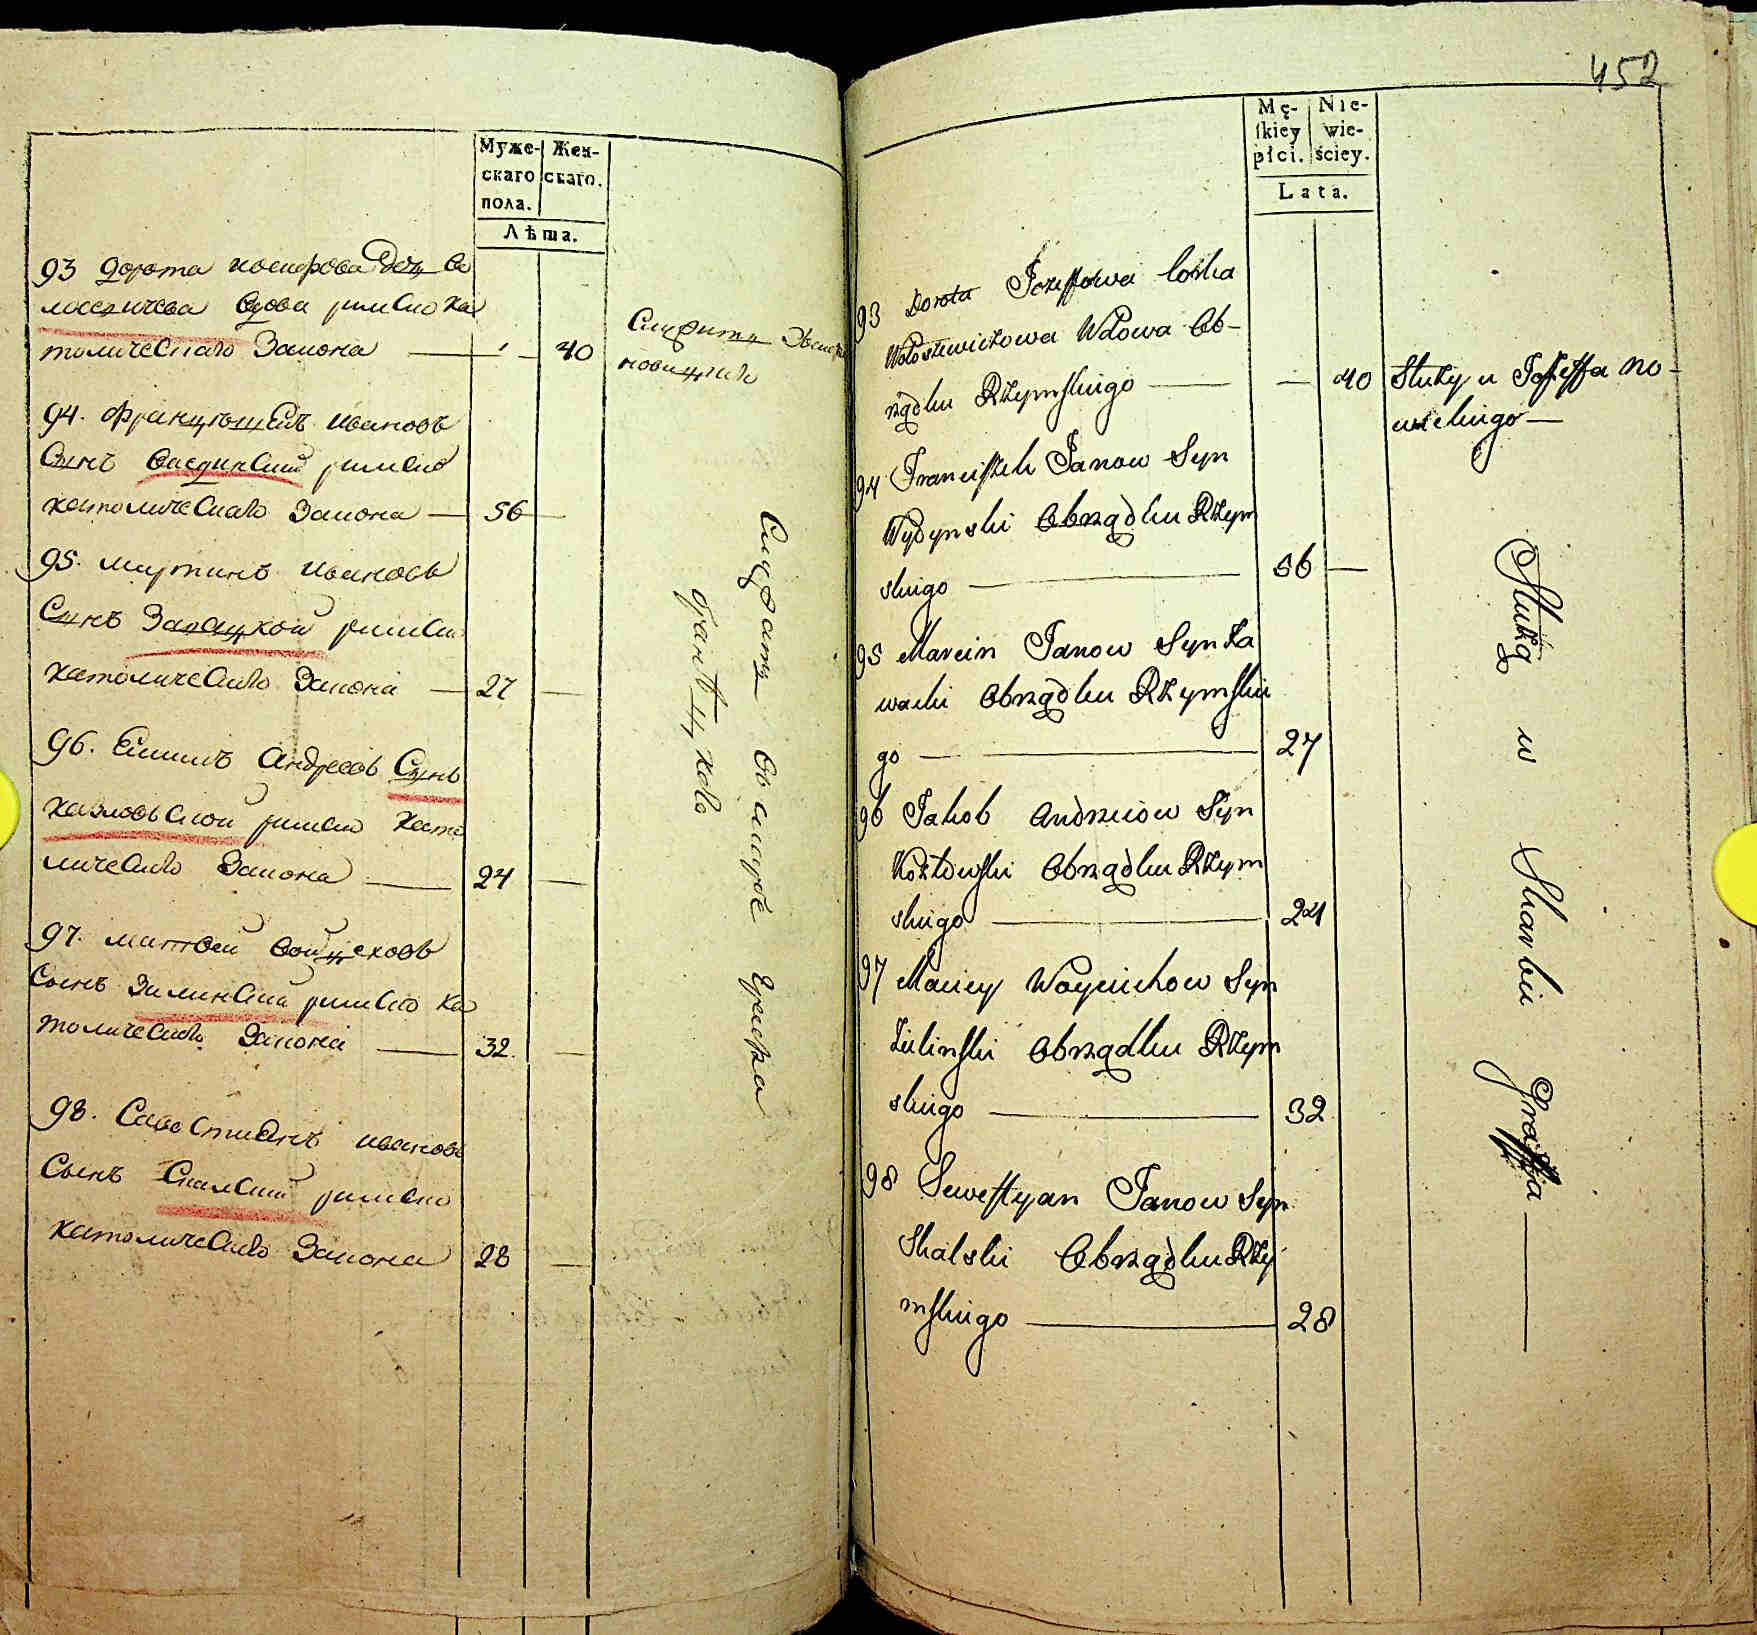 Муже-
скаго
пола.
Жен-
скаго.
Лѣта.
93 Дорота иосифова доч во
лосевичева вдова римско ка
толическаго Закона — 40
Служитъ
94. Францышекъ ивановъ
Сынъ римско
католическаго Закона — 56 —
95. мартинъ ивановъ
Сынъ Завацкой римско
католическаго Закона — 27 —
96. Андреевъ Сынъ
козловской римско като
лическаго Закона — 24 —
97. матвей войцеховъ
Сынъ Зилинский римско ка
толическаго Закона — 32 —
98. ивановъ
Сынъ Скалский римско
католическаго Закона 28 —
Служатъ
452
Mę-
skiey
płci.
Nie-
wie-
ściey.
Lata.
93 Dorota Jozeffowa Corka
Wołosiewiczowa Wdowa Ob-
rządku Rzymskiego — — 40
Służy u Jozeffa No-
wickiego —
94 Franciszek Janow Syn
Wydynski Obrządku Rzym
skiego — 56 —
95 Marcin Janow Syn Za
wacki Obrządku Rzymskie
go — 27
96 Jakob Andrzeiow Syn
Kozłowski Obrządku Rzym
skiego — 24
97 Maciey Woyciechow Syn
Zielinski Obrządku Rzym
skiego — 32
98 Sewestyan Janow Syn
Skalski Obrządku Rzy
mskiego — 28
Służą w Skarbie Graffa —